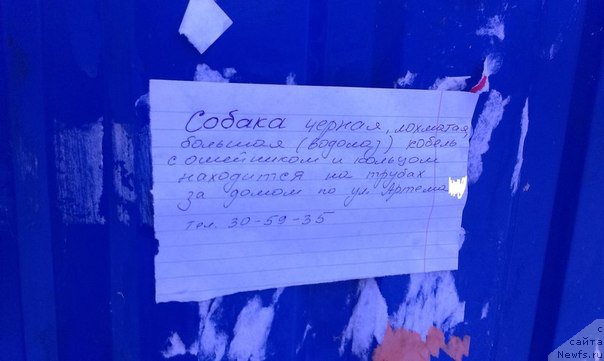 Собака черная, лохматая,
большая (водолаз) кобель
с ошейником и кольцом
находится на трубах
за домом по ул. Артема
тел. 30-59-35
с
сайта
Newfs.ru